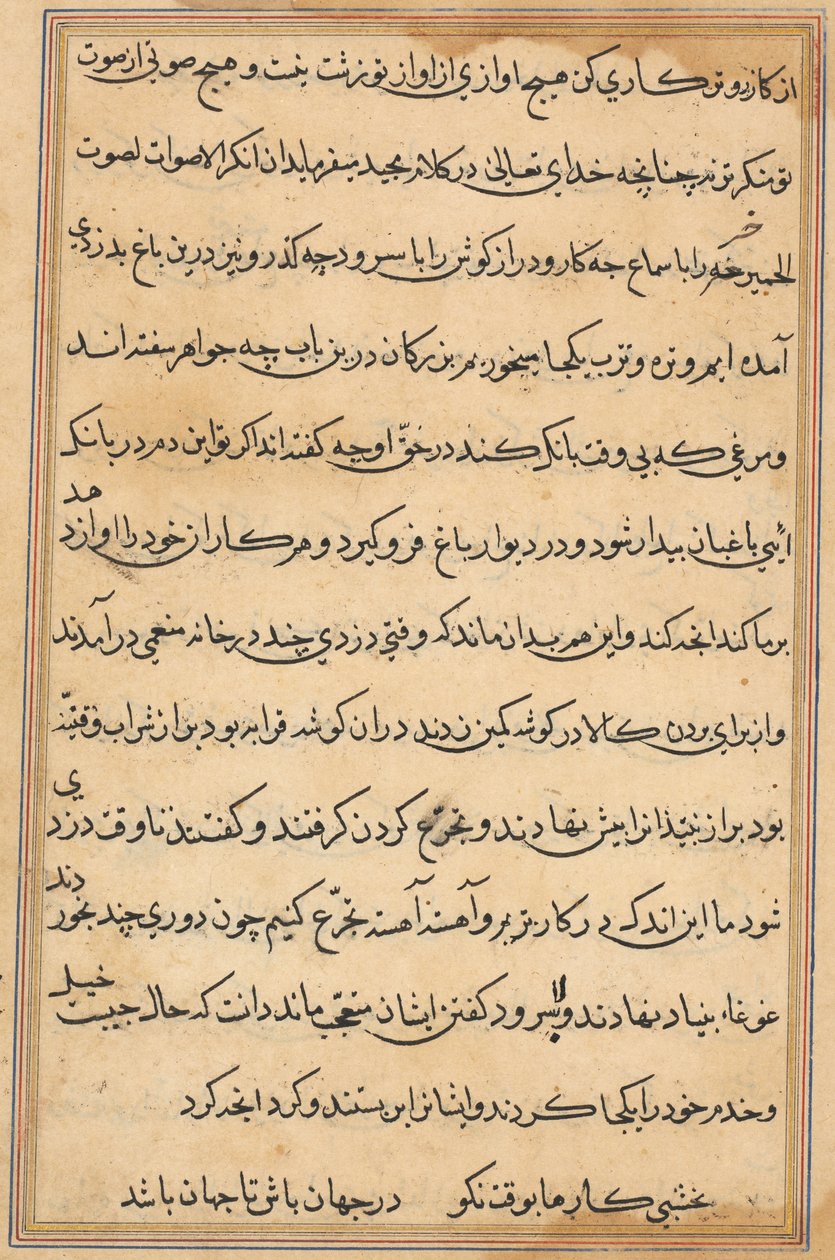 از کازروتن کاری کن هیچ اوازی از اواز تو زشت نیست و هیچ صوتی از صوت
تو منکرتر نه چنانچه خدای تعالی در کلام مجید میفرماید ان انکر الاصوات لصوت
الحمیر خر را با سماع چه کار و دراز کوش را با سرود چه کذر و نیز درین باغ بدزدی
آمده ایم و تره و ترب یکجا میخوریم بزرکان درین باب چه جواهر سفته اند
و مرغی که بی وقت بانک کند در حق او چه کفته اند اکر تو این دم در بانک
ائی باغبان بیدار شود و در دیوار باغ فرو کیرد و همکاران خود را اواز دهد
بر ما کند انچه کند و این هم بدان ماند که وقتی دزدی چند در خانه منعمی در آمدند
و از برای بردن کالا در کوشه کمین زدند دران کوشه قرابه بود پر از شراب و قنینه
بود پر از نبیذ انرا پیش نهادند و تجرّع کردن کرفتند و کفتند تا وقت دزدی
شود ما این اندک در کار بریم و آهسته آهسته تجرّع کنیم چون دوری چند بخوردند
غوغاء بنیاد نهادند و سرود کفتن ایشان متعجّب ماند دانست که حال چیست خیل
و خدم خود را یکجا کردند و ایشانرا بر بستند و کرد انچه کرد
نخشبی کارها بوقت نکو در جهان باش تا جهان باشد